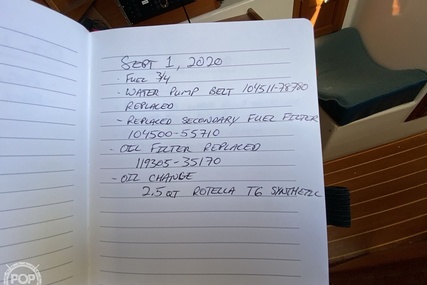 SEPT 1, 2020
- FUEL 3/4
- WATER PUMP BELT 104511-78780
REPLACED
- REPLACED SECONDARY FUEL FILTER
104500-55710
- OIL FILTER REPLACED
119305-35170
- OIL CHANGE
2.5 QT ROTELLA T6 SYNTHETIC
POP